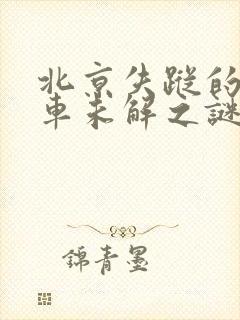 北京失蹤的
車未解之謎
錦青墨